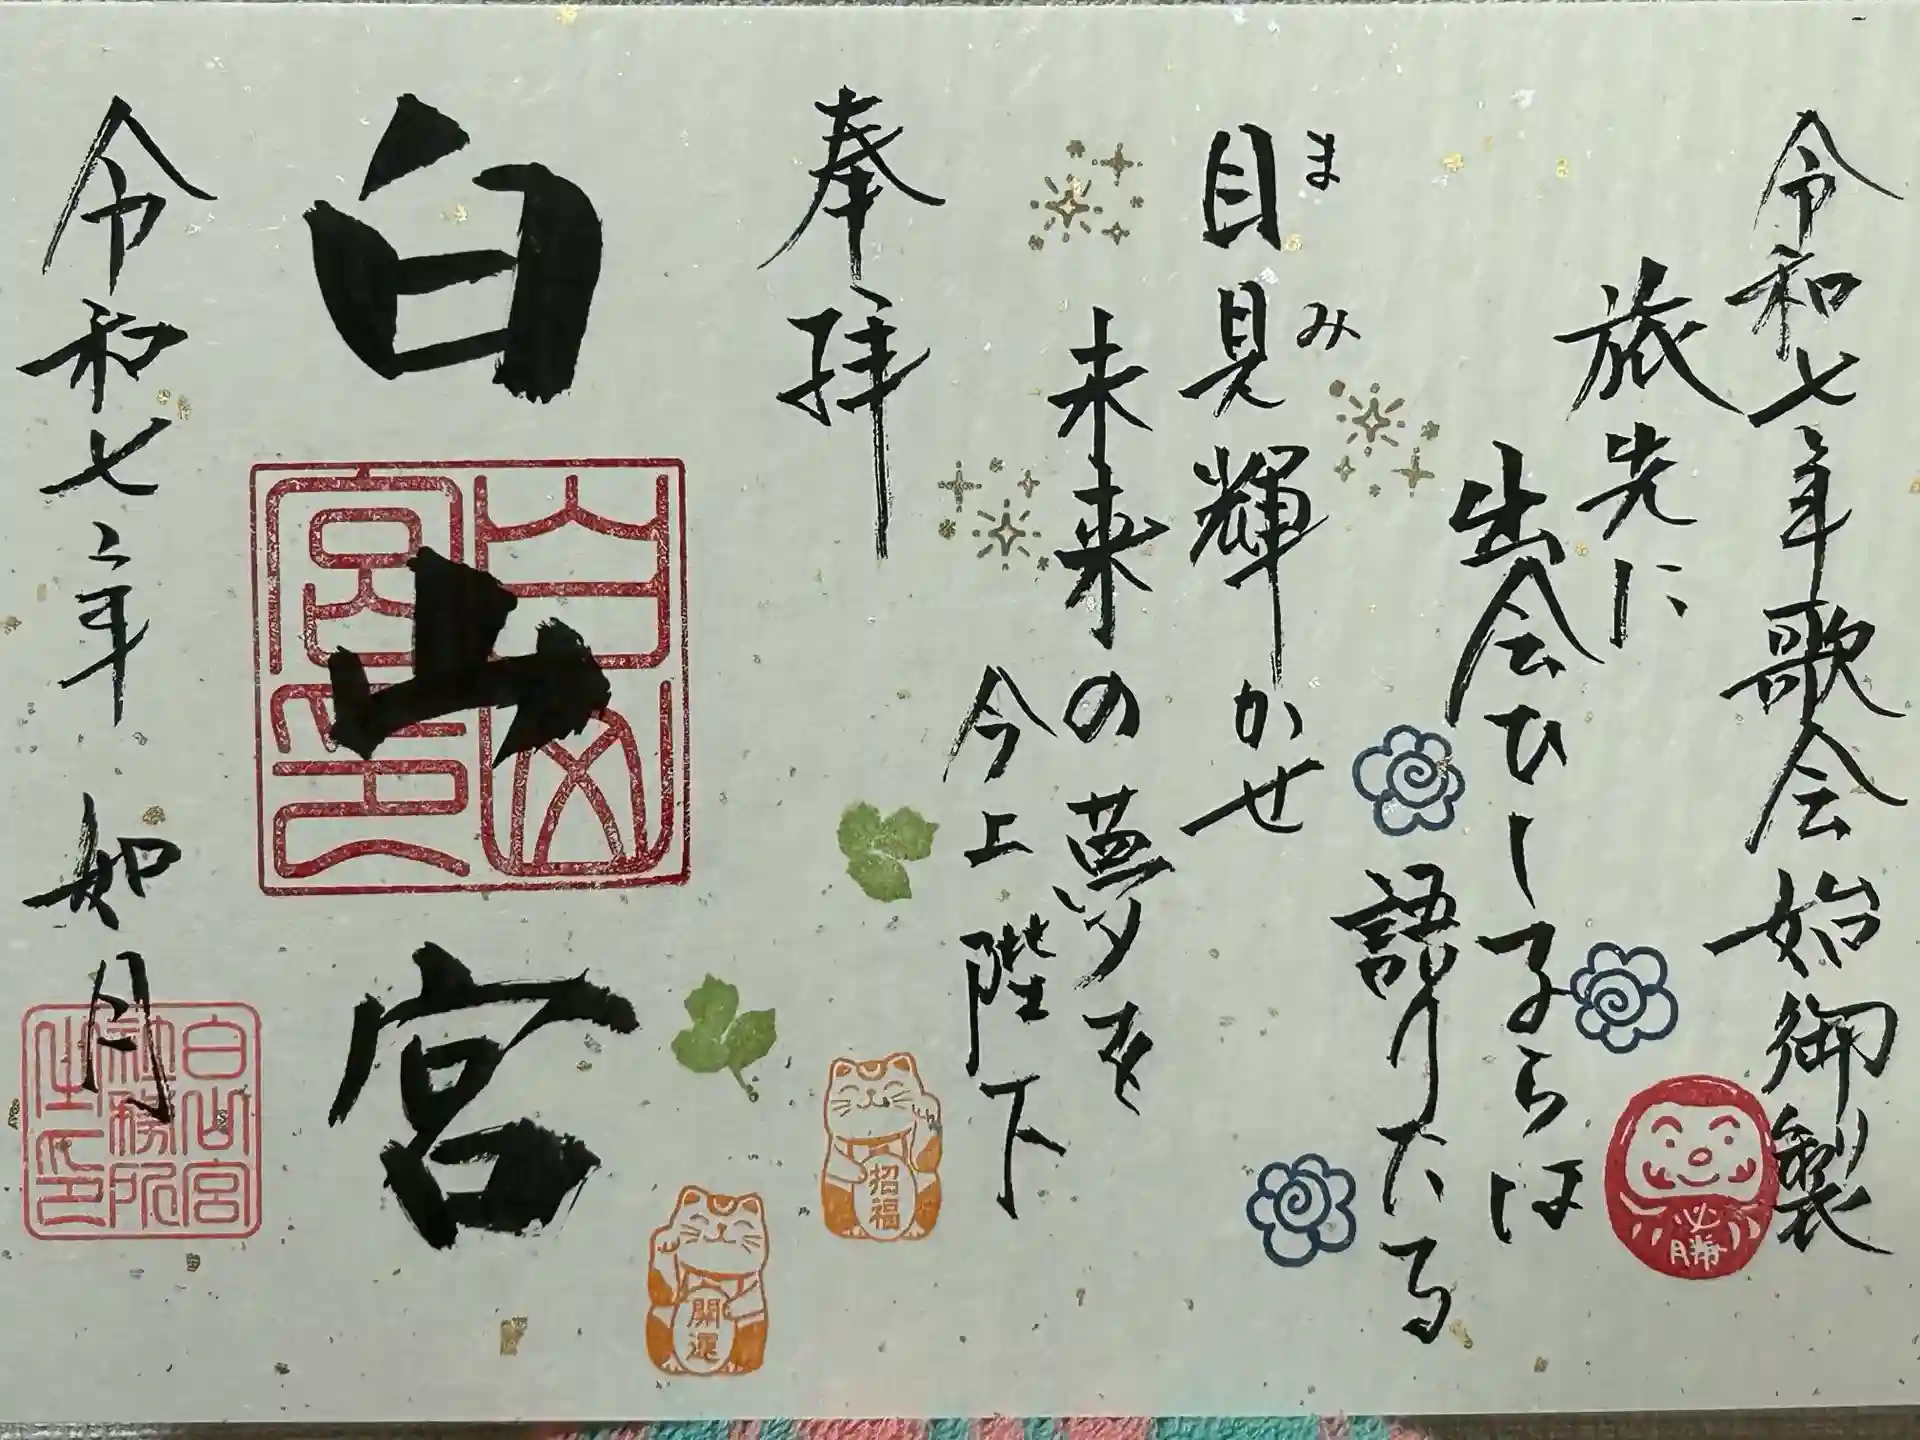 令和七年歌会始御製
旅先に
出会ひし子らは
語りたる
目見輝かせ
まみ
未来の夢を
今上陛下
奉拝
白山宮
令和七年 如月
白山宮印
白山宮
社務所
之印
必勝
招福
開運